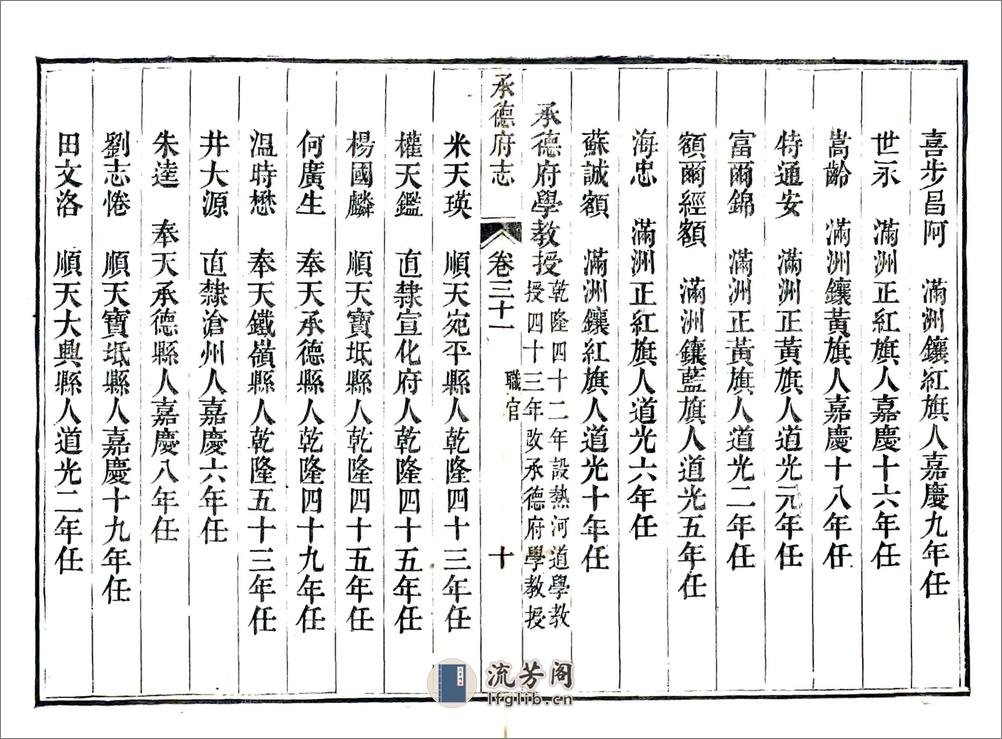 喜步昌阿　滿洲鑲紅旗人嘉慶九年任
世永　滿洲正紅旗人嘉慶十六年任
嵩齡　滿洲鑲黃旗人嘉慶十八年任
特通安　滿洲正黃旗人道光元年任
富爾錦　滿洲正黃旗人道光二年任
額爾經額　滿洲鑲藍旗人道光五年任
海忠　滿洲正紅旗人道光六年任
蘇誠額　滿洲鑲紅旗人道光十年任
承德府學教授
乾隆四十二年設熱河道學教
授四十三年改承德府學教授
承德府志　卷三十一　職官　十
米天瑛　順天宛平縣人乾隆四十三年任
權天鑑　直隸宣化府人乾隆四十五年任
楊國麟　順天寶坻縣人乾隆四十五年任
何廣生　奉天承德縣人乾隆四十九年任
溫時懋　奉天鐵嶺縣人乾隆五十三年任
井大源　直隸滄州人嘉慶六年任
朱達　奉天承德縣人嘉慶八年任
劉志惓　順天寶坻縣人嘉慶十九年任
田文洛　順天大興縣人道光二年任
流芳阁
lfglib.cn